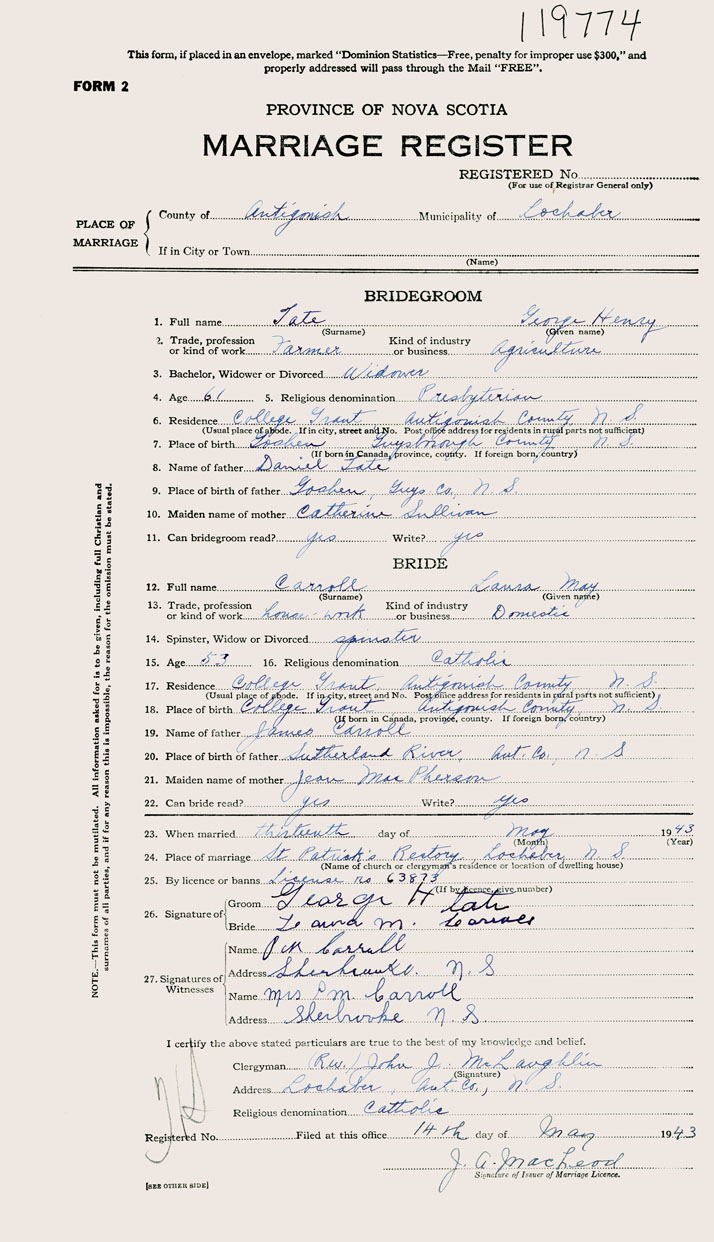 119774
This form, if placed in an envelope, marked "Dominion Statistics—Free, penalty for improper use $300," and
properly addressed will pass through the Mail "FREE".
FORM 2
PROVINCE OF NOVA SCOTIA
MARRIAGE REGISTER
REGISTERED No.
(For use of Registrar General only)
PLACE OF MARRIAGE
County of Antigonish Municipality of Lochaber
If in City or Town
(Name)
BRIDEGROOM
1. Full name Tate George Henry
(Surname) (Given name)
2. Trade, profession or kind of work Farmer Kind of industry or business Agriculture
3. Bachelor, Widower or Divorced Widower
4. Age 61 5. Religious denomination Presbyterian
6. Residence College Grant Antigonish County, N. S.
(Usual place of abode. If in city, street and No. Post office address for residents in rural parts not sufficient)
7. Place of birth Goshen Guysborough County N. S.
(If born in Canada, province, county. If foreign born, country)
8. Name of father Daniel Tate
9. Place of birth of father Goshen, Guys Co, N. S
10. Maiden name of mother Catherine Sullivan
11. Can bridegroom read? yes Write? yes
BRIDE
12. Full name Carroll Laura May
(Surname) (Given name)
13. Trade, profession or kind of work house-work Kind of industry or business Domestic
14. Spinster, Widow or Divorced spinster
15. Age 53 16. Religious denomination Catholic
17. Residence College Grant, Antigonish County N. S.
(Usual place of abode. If in city, street and No. Post office address for residents in rural parts not sufficient)
18. Place of birth College Grant Antigonish County, N. S.
(If born in Canada, province, county. If foreign born, country)
19. Name of father James Carroll
20. Place of birth of father Sutherland River, Ant. Co., N. S
21. Maiden name of mother Jean MacPherson
22. Can bride read? yes Write? yes
23. When married thirteenth day of May 1943
(Month) (Year)
24. Place of marriage St Patrick's Rectory, Lochaber, N. S.
(Name of church or clergyman's residence or location of dwelling house)
25. By licence or banns License no 63873
(If by licence, give number)
26. Signature of
Groom George H Tate
Bride Laura M. Carroll
27. Signatures of Witnesses
Name P M Carroll
Address Sherbrooke. N. S
Name Mrs P. M. Carroll
Address Sherbrooke N. S.
I certify the above stated particulars are true to the best of my knowledge and belief.
Clergyman (Rev.) John J. McLaughlin
(Signature)
Address Lochaber, Ant. Co., N. S.
Religious denomination Catholic
Registered No. Filed at this office 14th day of May 1943
J. A. MacLeod
Signature of Issuer of Marriage Licence.
[SEE OTHER SIDE]
NOTE.—This form must not be mutilated. All information asked for is to be given, including full Christian and
surnames of all parties, and if for any reason this is impossible, the reason for the omission must be stated.